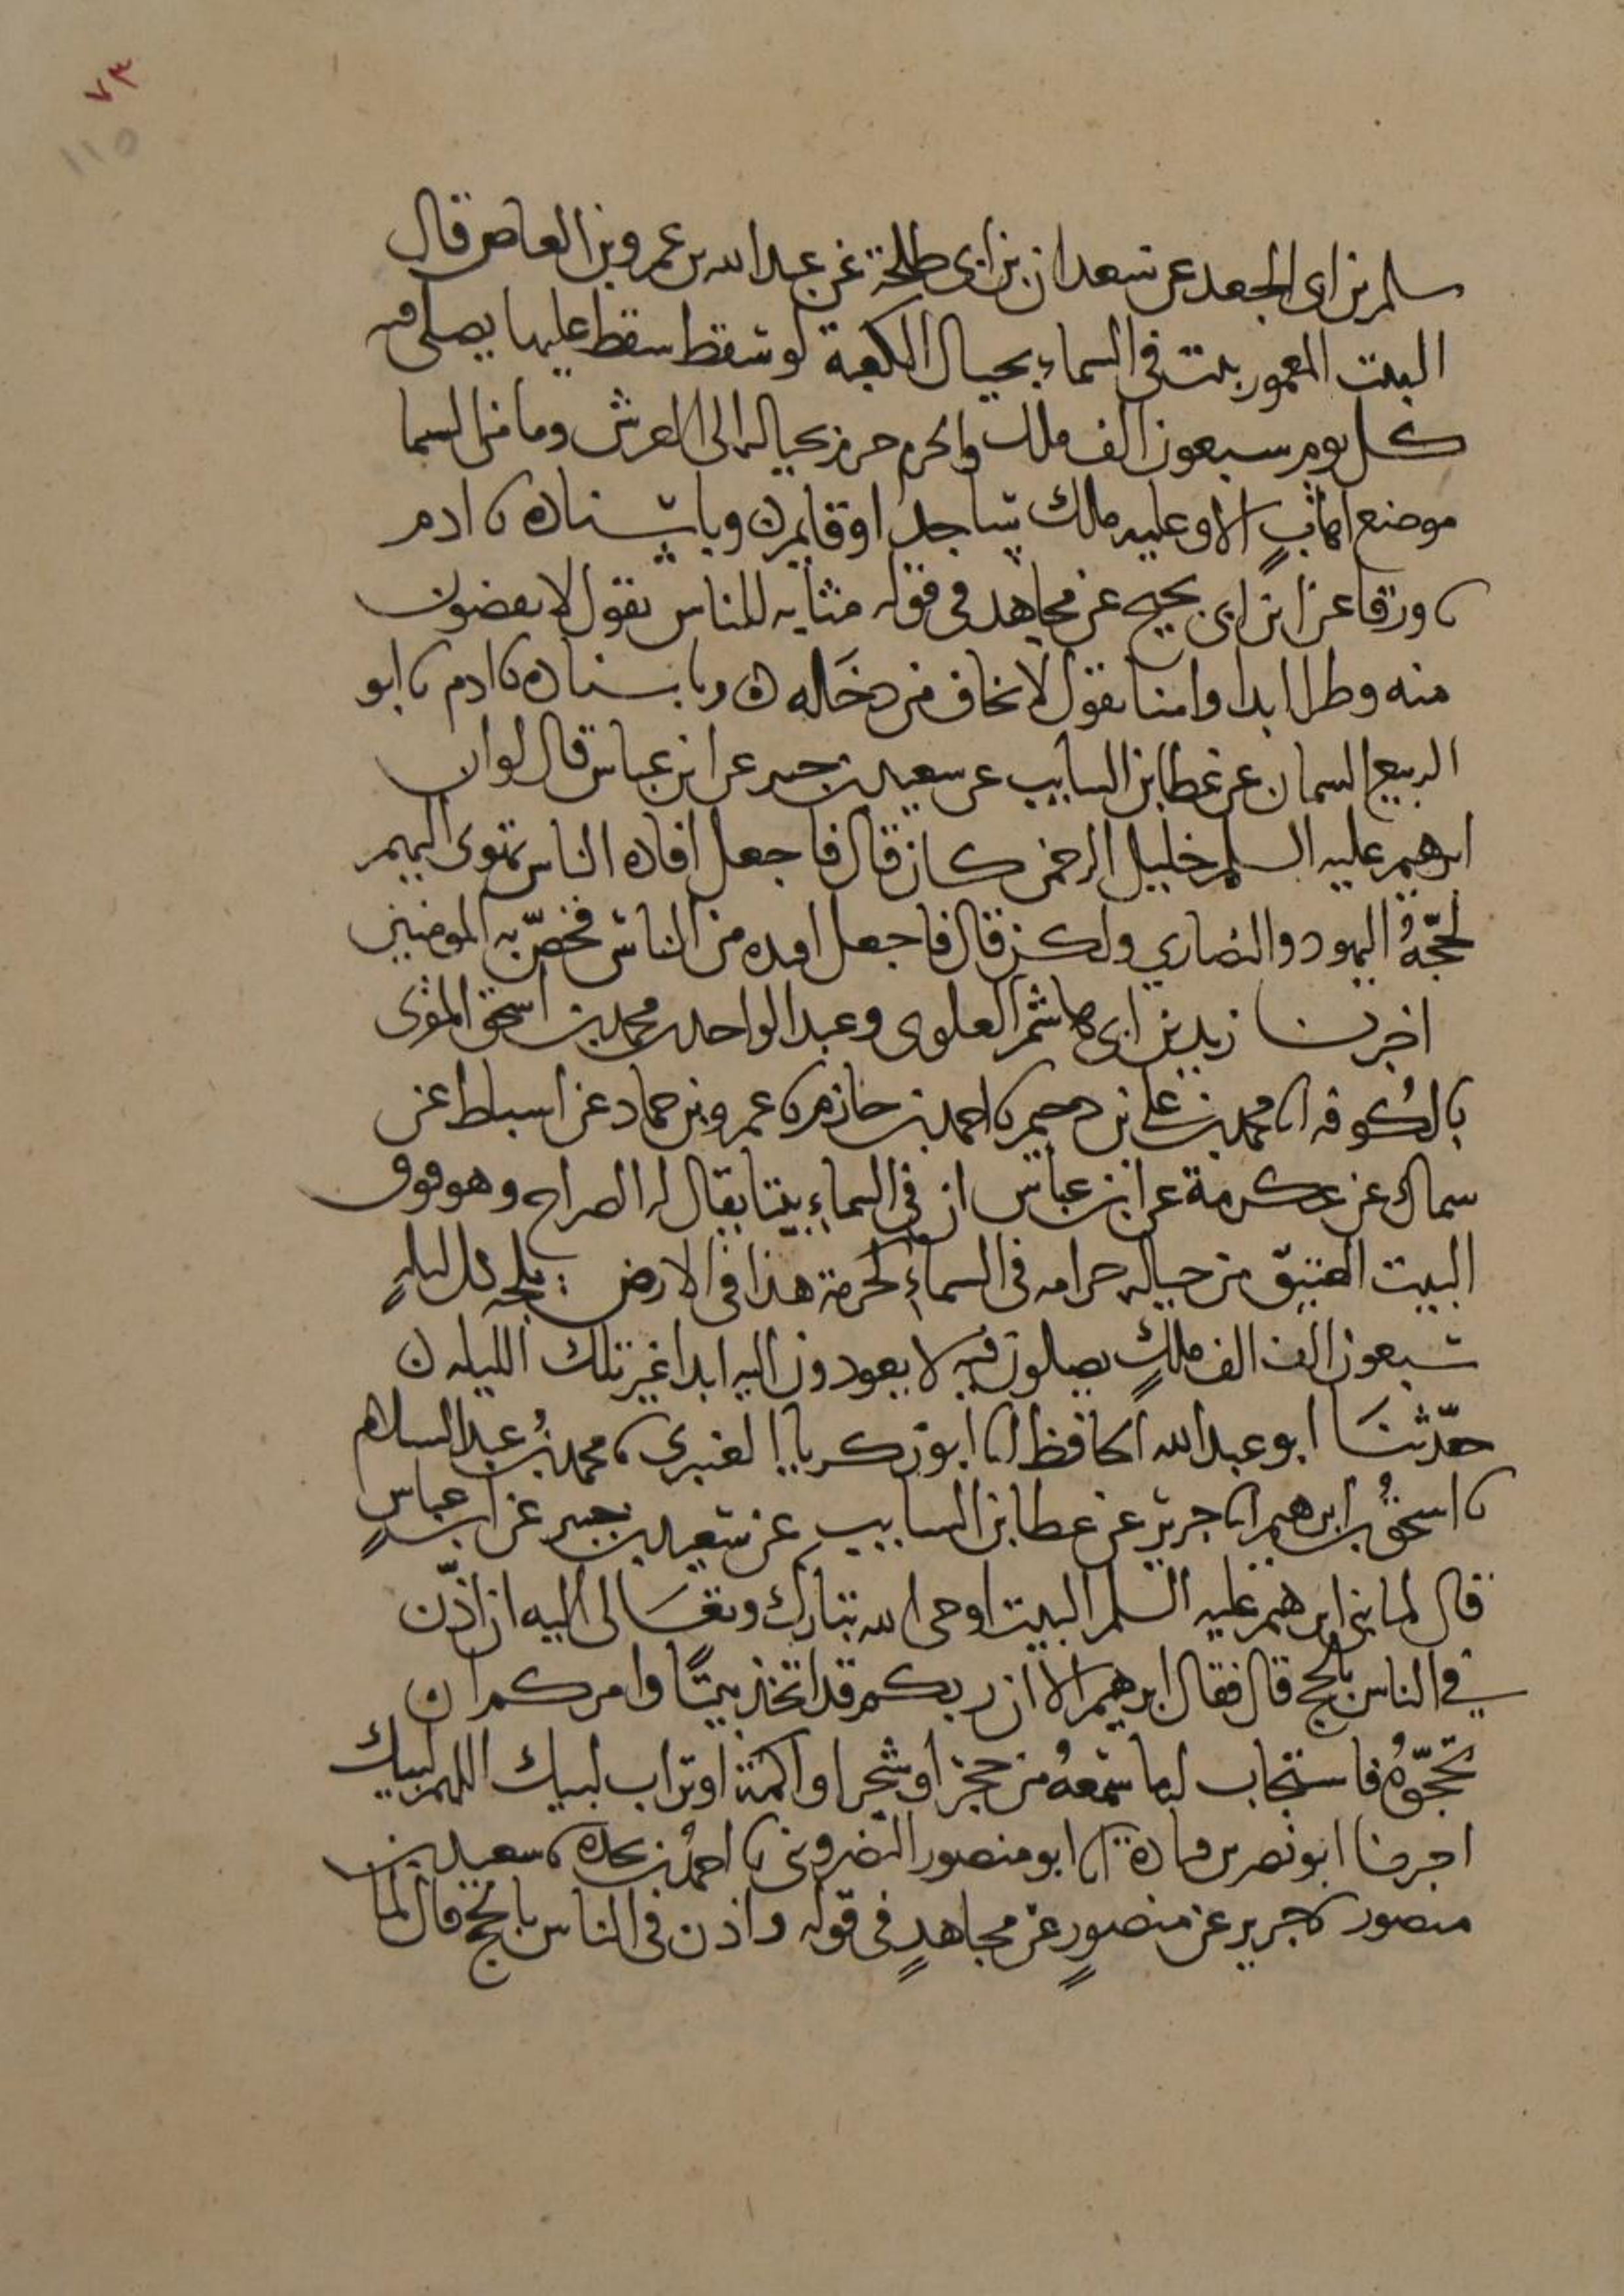 ٧٣
١١٥
سلم بن ابى الجعد عن معدان بن ابى طلحة عن عبد الله بن عمرو بن العاص قال
البيت المعمور بيت في السماء بحيال الكعبة لو سقط سقط عليها يصلى فيه
كل يوم سبعون الف ملك والحرم حرم بحياله الى العرش وما من السما
موضع اهاب الا وعليه ملك ساجد او قايم ن وباسناده نا ادم
نا ورقا عن ابن ابى نجيح عن مجاهد في قوله مثابه للناس يقول لا يقضون
منه وطرا ابدا وامنا يقول لا نخاف من دخله ن وباسناده نا ادم نا ابو
الربيع السمان عن عطا بن السايب عن سعيد بن جبير عن ابن عباس قال لو ان
ابرهيم عليه السلم خليل الرحمن كان قال فاجعل افئدة الناس تهوى اليهم
لحجّهُ اليهود والنصاري ولكن قال فاجعل افئده من الناس فخصّ به المومنين
اخبرنا زيد بن ابى هاشم العلوى وعبد الواحد بن محمد بن اسحق المقرى
بالكُوفه انا محمد بن على بن دحيم نا احمد بن حازم نا عمرو بن حماد عن اسباط عن
سماك عن عكرمة عن ابن عباس ان في السماء بيتا يقال له الصراح وهو فوق
البيت العتيق من حياله حرامه في السماءِ كحرمة هذا في الارض يلجه كل ليلةٍ
سبعون الف الف ملكٍ يصلون فيه لا يعودون اليه ابدا غير تلك الليله ن
حدّثنَا ابو عبد الله الحافظ انا ابو زكريا العنبري نا محمد بنُ عبد السلام
نا اسحقُ بن ابرهيم انا جرير عن عطا بن السايب عن سعيد بن جبير عن ابن عباسٍ
قال لما بنى ابرهيم عليه السلم البيت اوحى الله تبارك وتعَالى اليه ان اذّن
في الناس بالحج قال فقال ابرهيم الا ان ربكم قد اتخذ بيتًا وامركم ان
تحجّوُه فاستجاب له ما سمعهُ من حجر او شجر او اكمة او تراب لبيك اللهم لبيك
اخبرنا ابو نصر بن قتادة انا ابو منصور النضروى نا احمدُ بن نجده نا سعيد بن
منصور نا جرير عن منصورٍ عن مجاهدٍ في قوله واذن في الناس بالحج قال لما